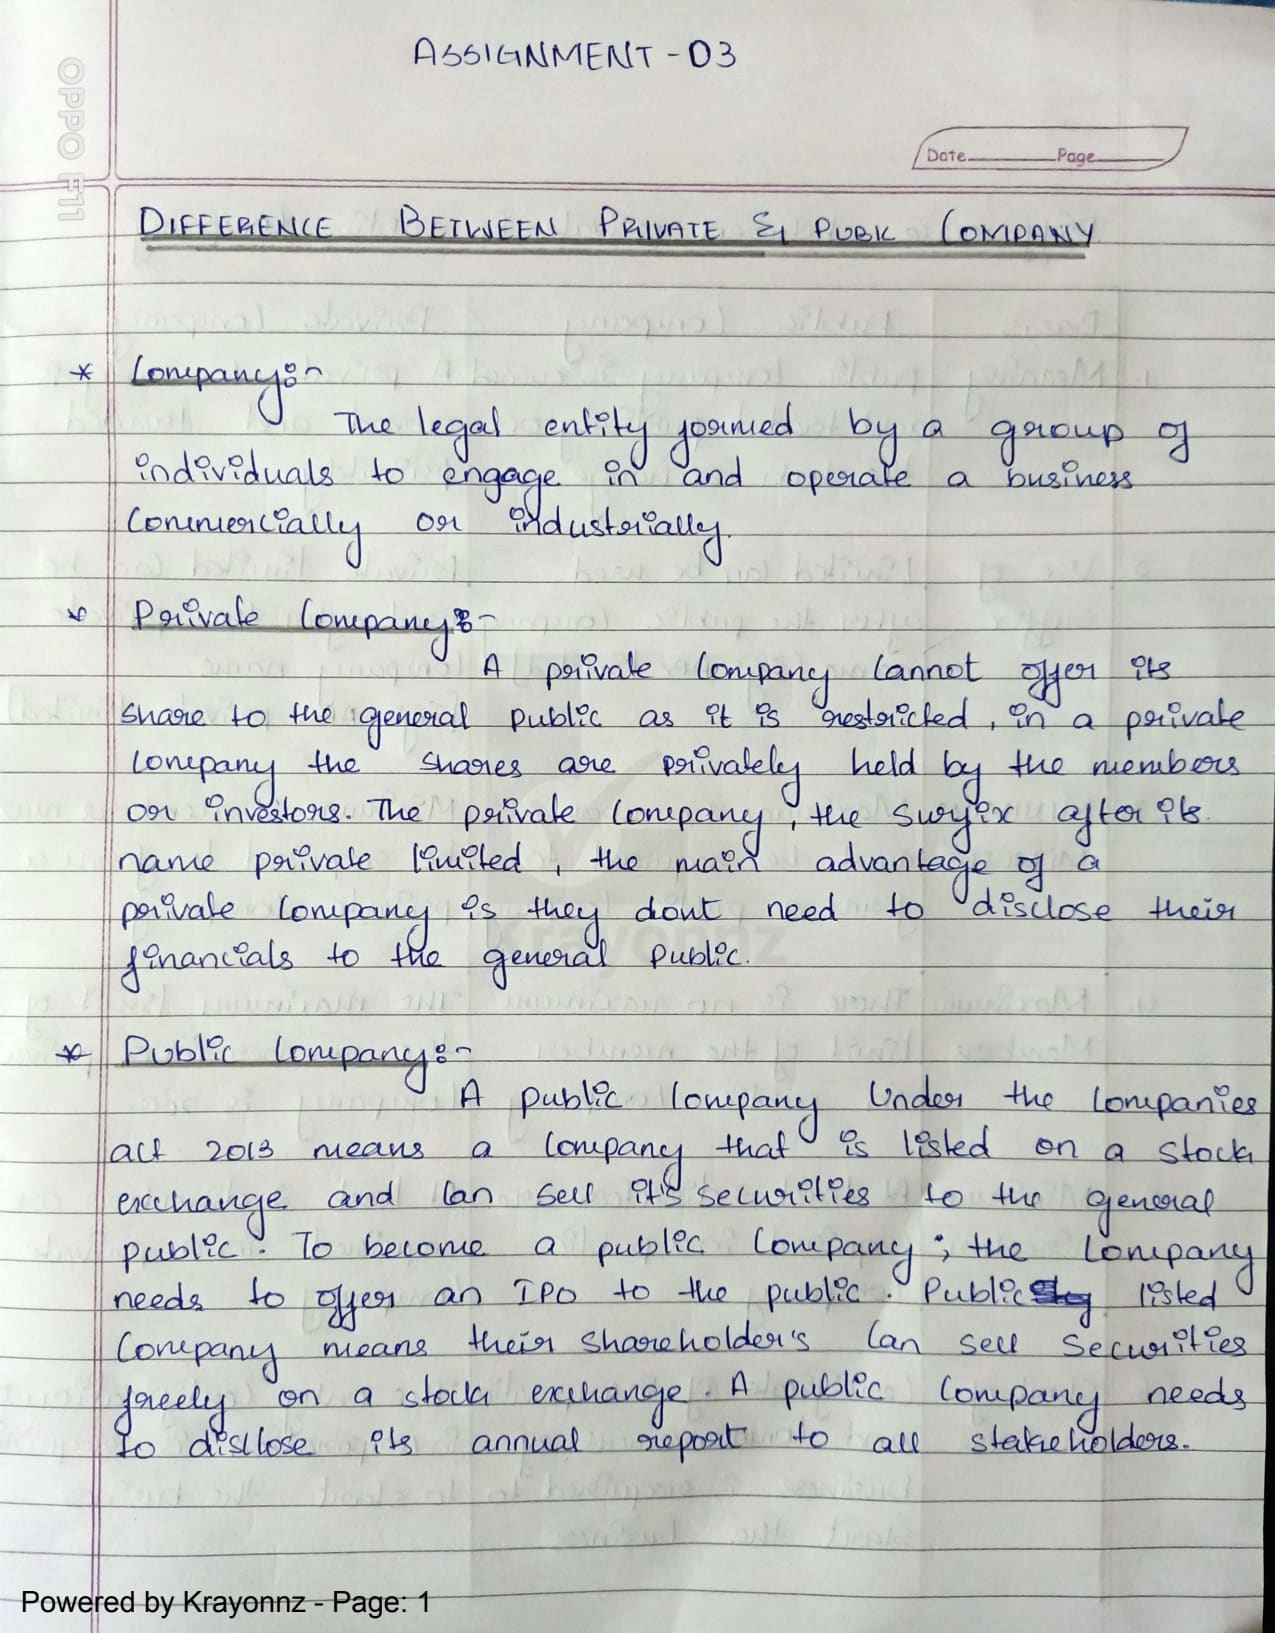 ASSIGNMENT - 03
OPPO F11
Date Page
DIFFERENCE BETWEEN PRIVATE & PUBIC COMPANY
* Company:-
The legal entity formed by a group of
individuals to engage in and operate a business
Commercially or industrially.
* Private Company:-
A private Company Cannot offer its
share to the general public as it is restricted, in a private
Company the shares are privately held by the members
or investors. The private Company, the suffix after its
name private limited, the main advantage of a
private Company is they dont need to disclose their
financials to the general public.
Krayonnz
* Public Company:-
A public Company Under the Companies
act 2013 means a Company that is listed on a stock
exchange and Can sell it's securities to the general
public. To become a public Company; the Company
needs to offer an IPO to the public. Public listed
Company means their shareholder's Can sell Securities
freely on a stock exchange. A public Company needs
to disclose its annual report to all stakeholders.
Powered by Krayonnz - Page: 1